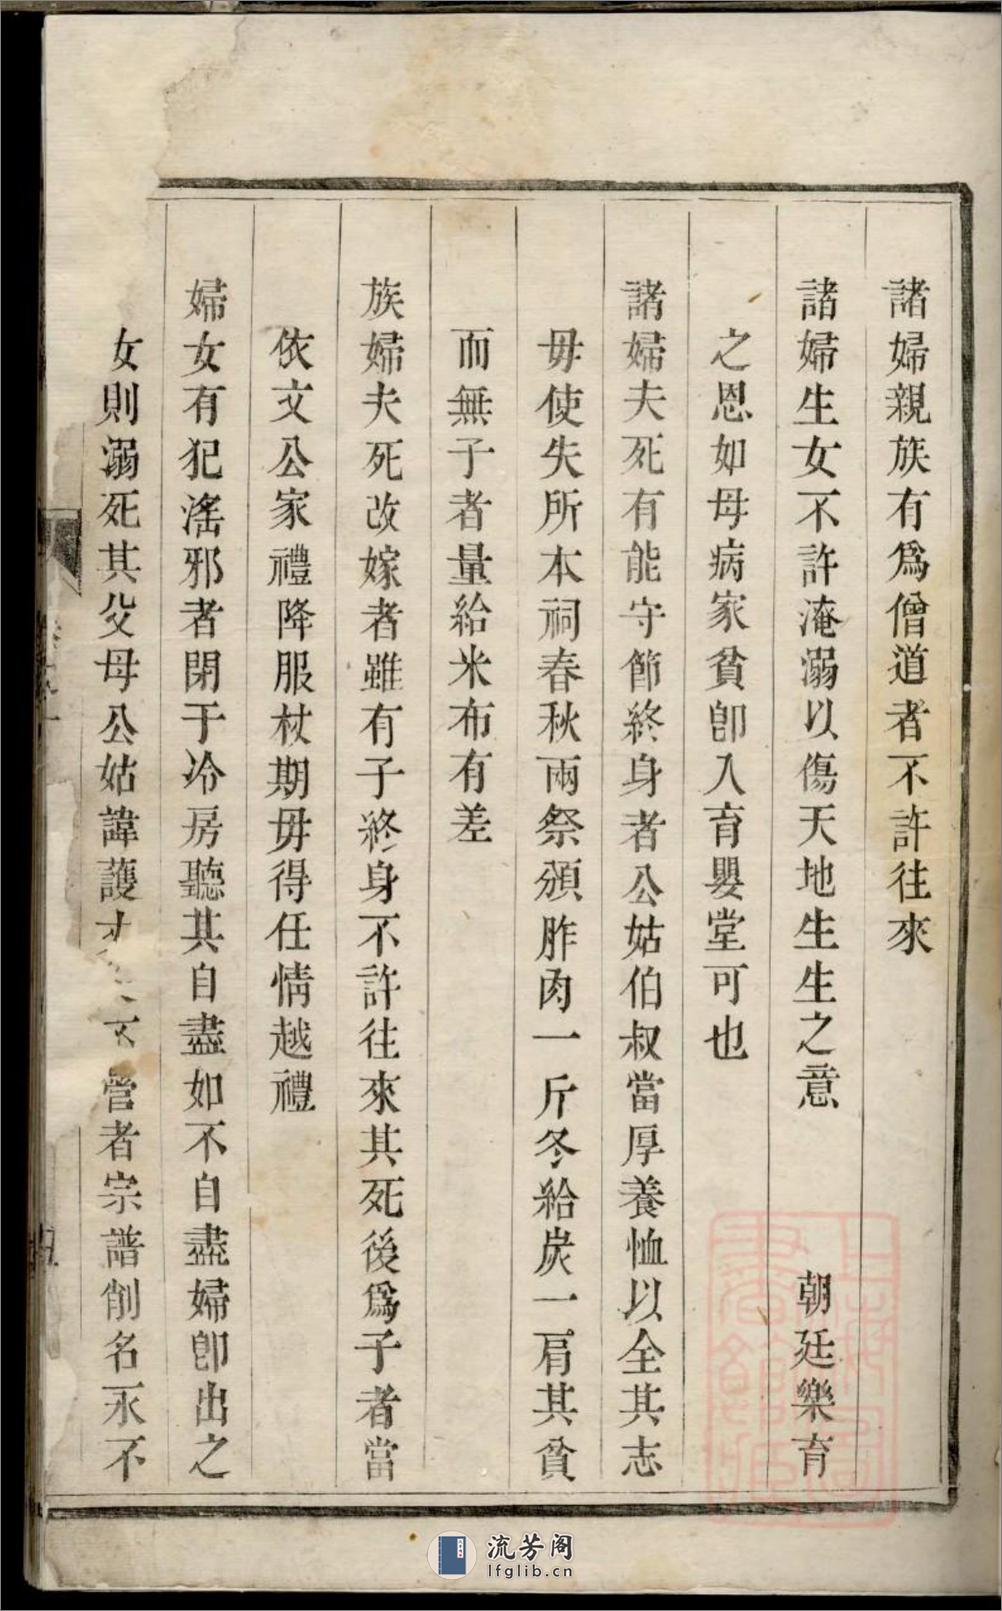 諸婦親族有爲僧道者不許往來
諸婦生女不許淹溺以傷天地生生之意 朝廷樂育
之恩如母病家貧卽入育嬰堂可也
諸婦夫死有能守節終身者公姑伯叔當厚養恤以全其志
毋使失所本祠春秋兩祭頒胙肉一斤冬給炭一肩其貧
而無子者量給米布有差
族婦夫死改嫁者雖有子終身不許往來其死後爲子者當
依文公家禮降服杖期毋得任情越禮
婦女有犯滛邪者閉于冷房聽其自盡如不自盡婦卽出之
女則溺死其父母公姑諱護 者宗譜削名永不
流芳阁
lfglib.cn